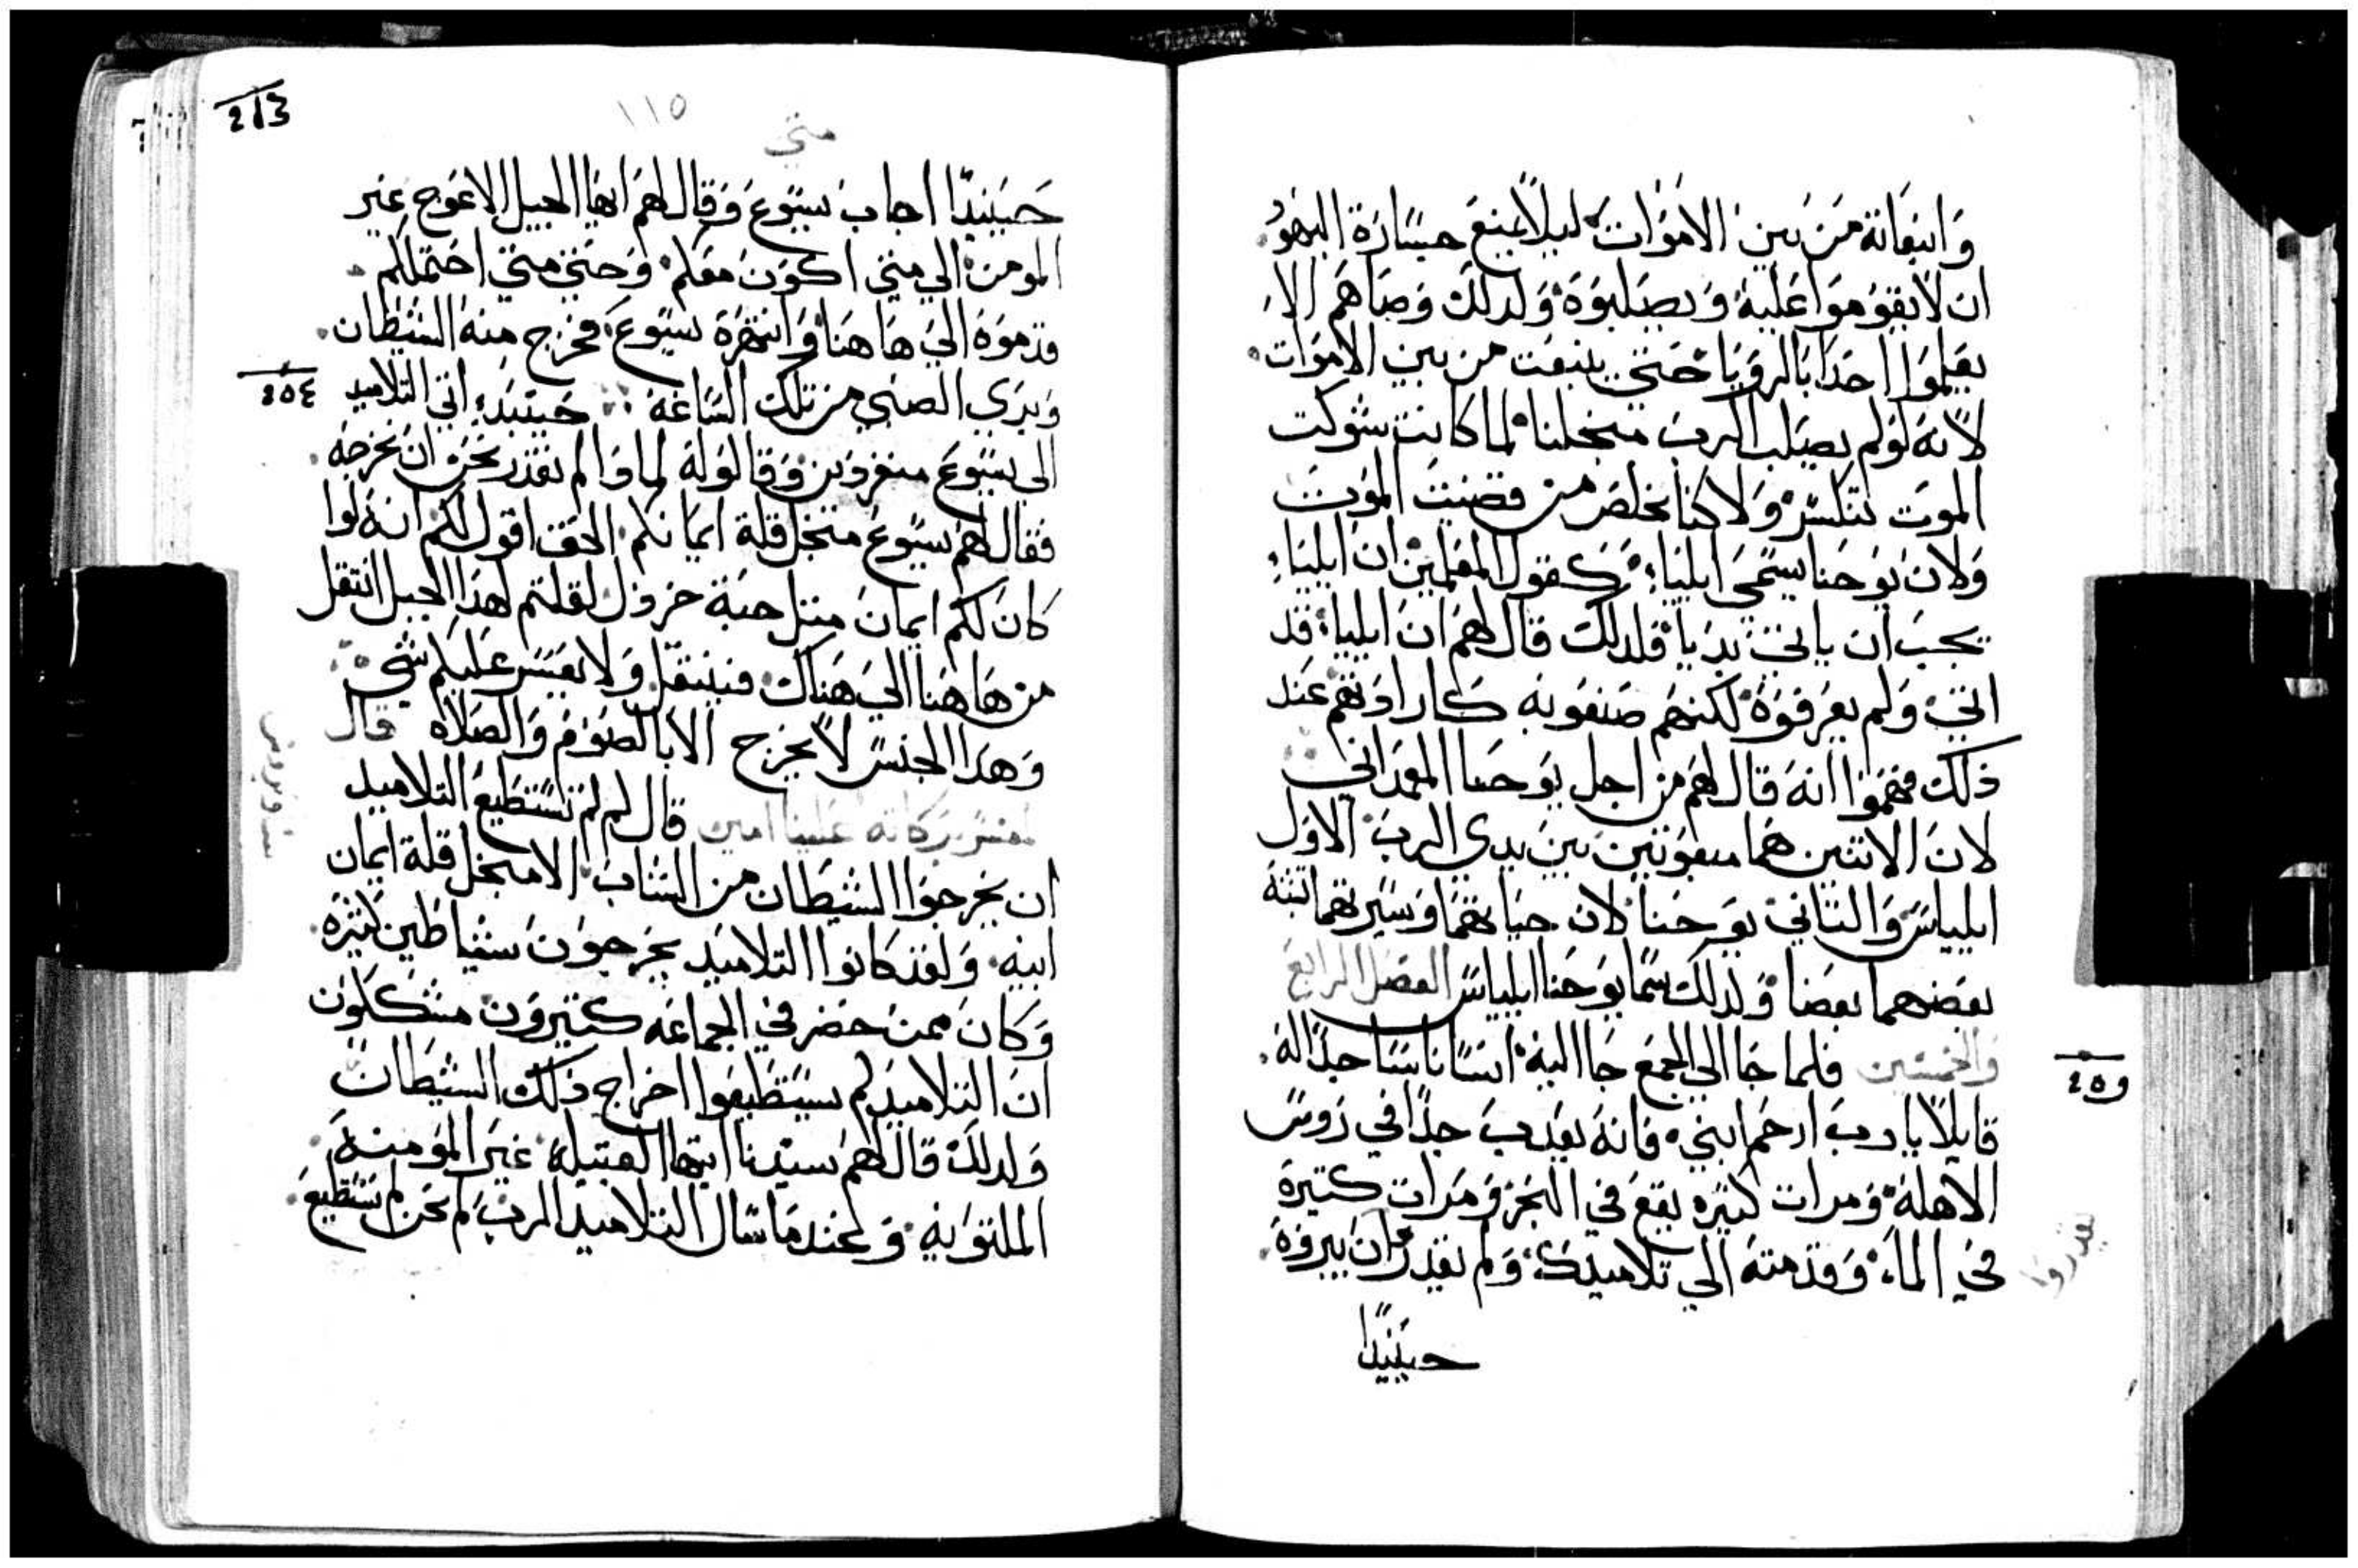 وانبعاثه من بين الاموات، ليلا يمنع جسارة اليهود
ان لا يقوموا عليه ويصلبوه، ولدلك وصاهم الا
يعلموا احدا بالرويا حتي ينبعت من بين الاموات.
لانه لو لم يصلب الرب منجلنا، لما كانت شوكت
الموت تنكسر، ولا كنا نخلص من قضيت الموت
ولان يوحنا يسمي ايلياء، كقول المعلمين ان ايلياء
يجب ان ياتي بديا، فلدلك قال لهم ان ايلياء قد
اتي، ولم يعرفوه، لكنهم صنعو به كارادتهم عند
ذلك فهموا انه قال لهم من اجل يوحنا المعمداني
لان الاتنين هما مبعوتين بين يدي الرب، الاول
ايلياس، والتاني يوحنا، لان حياتهما وسيرتهما تشبه
بعضهما بعضا، ولدلك سما يوحنا ايلياس الفصل الرابع
والخمسين فلما جا الي الجمع جا اليه، انسانا ساجدا له.
قايلا يا رب ارحم ابني، فانه يعدب جدا في روس
الاهلة، ومرات كتيره يقع في البحر ومرات كتيرة
في الماء، وقدمته الي تلاميدك، ولم يقدر ان يبروه.
يقدروا
حينيدا
٢٥٥
213
١١٥
متي
حينيدا اجاب يسوع وقال لهم ايها الجيل الاعوج غير
المومن، الي متي اكون معكم، وحتي متي احتملكم.
قدموه الي هاهنا، وانتهره يسوع، فخرج منه الشيطان.
وبري الصبي من تلك الساعة ∴ حينيد، اتي التلاميد
٢٥٤
الى يسوع منفردين وقالو له لماوا لم نقدر نحن ان نخرجه.
فقال لهم يسوع منجل قلة ايمانكم، الحق اقول لكم انه لوا
كان لكم ايمان متل حبة خردل لقلتم لهدا الجبل انتقل
من هاهنا الي هناك، فينتقل ولا يعسر عليكم شي ∴
وهدا الجنس لا يخرج الا بالصوم والصلاه قال
المفسر بركاته علينا امين قال لم لم تستطيع التلاميد
ان يخرجوا الشيطان من الشاب، الا منجل قلة ايمان
ابيه، ولقد كانوا التلاميد يخرجون شياطين كتيره.
وكان ممن حضر في الجماعه كتيرون مشككون
ان التلاميد لم يستطيعوا اخراج ذلك الشيطان
ولدلك قال لهم سيدنا ايتها القبيله غير المومنه.
الملتويه، وعندما سال التلاميد الرب لم نحن لم نستطيع.